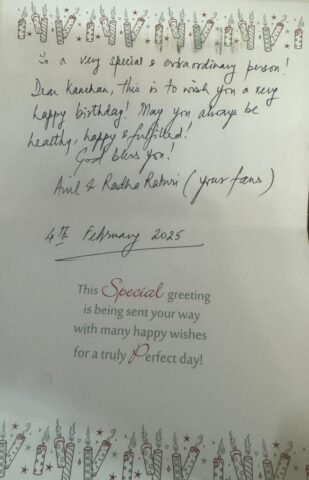 is a very special & extraordinary person!
Dear Kanchan, this is to wish you a very
happy birthday! May you always be
healthy, happy & fulfilled!
God bless you!
Anil & Radha Raturi (your fans)
4th February 2025
This Special greeting
is being sent your way
with many happy wishes
for a truly Perfect day!